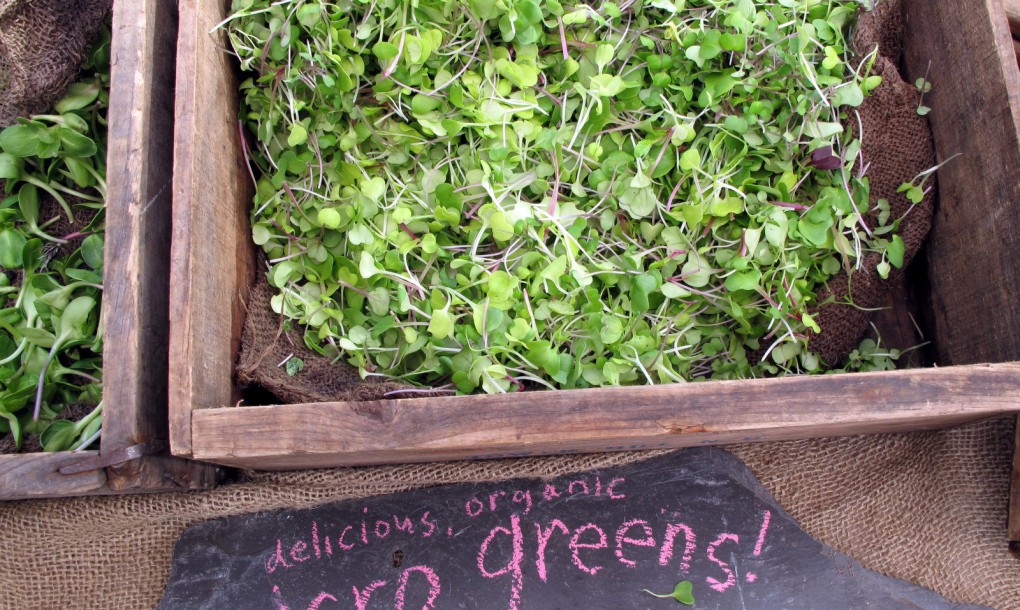 delicious, organic
micro greens!